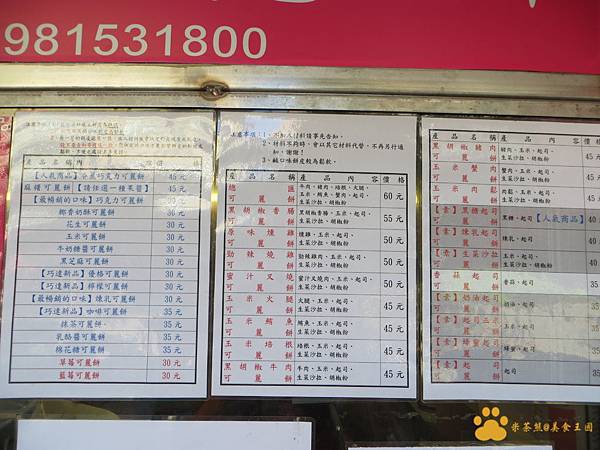 981531800
產品名稱 內 容 價格
【人氣商品】
巧克力可麗餅 45元
麻糬可麗餅【請任選一種果醬】 45元
【最暢銷的口味】巧克力可麗餅 30元
椰香奶酥可麗餅 30元
花生可麗餅 30元
玉米可麗餅 30元
牛奶糖醬可麗餅 30元
黑芝麻可麗餅 30元
【巧達新品】優格可麗餅 30元
【巧達新品】檸檬可麗餅 30元
【最暢銷的口味】煉乳可麗餅 30元
【巧達新品】咖啡可麗餅 35元
抹茶可麗餅 35元
乳酪醬可麗餅 35元
棉花糖可麗餅 35元
草莓可麗餅 30元
藍莓可麗餅 30元
注意事項:1、不加入材料請事先告知。
2、材料不夠時,會以其它材料代替,不再另行通知,謝謝!
3、鹹口味餅皮較為鬆軟。
產品名稱 產品內容 價格
總匯可麗餅 牛肉、豬肉、培根、火腿、玉米、起司、生菜沙拉、胡椒粉 60元
黑胡椒香腸可麗餅 黑胡椒香腸、玉米、起司、生菜沙拉、胡椒粉 55元
原味燻雞可麗餅 燻雞、玉米、起司、生菜沙拉、胡椒粉 50元
勁辣燒雞可麗餅 勁辣雞肉、玉米、起司、生菜沙拉、胡椒粉 50元
蜜汁叉燒可麗餅 蜜汁叉燒肉、玉米、起司、生菜沙拉、胡椒粉 50元
玉米火腿可麗餅 火腿、玉米、起司、生菜沙拉、胡椒粉 45元
玉米鮪魚可麗餅 鮪魚、玉米、起司、生菜沙拉、胡椒粉 45元
玉米培根可麗餅 培根、玉米、起司、生菜沙拉、胡椒粉 45元
黑胡椒牛肉可麗餅 牛肉、玉米、起司、生菜沙拉、胡椒粉 45元
產品名稱 產品內容 價格
黑胡椒豬肉可麗餅 豬肉、玉米、起司、生菜沙拉、胡椒粉 45
玉米蟹肉可麗餅 蟹肉、玉米、起司、生菜沙拉、胡椒粉 45
玉米肉鬆可麗餅 肉鬆、玉米、起司、生菜沙拉、胡椒粉 45
【素】黑糖起司可麗餅 黑糖、起司【人氣商品】 40
【素】煉乳起司可麗餅 煉乳、起司 40
【素】生菜沙拉可麗餅 玉米、起司、生菜沙拉、胡椒粉 40
香蒜起司可麗餅 香蒜、起司 35
【素】奶油起司可麗餅 奶油、起司 35
【素】起司玉米可麗餅 玉米、起司 35
【素】蜂蜜起司可麗餅 蜂蜜、起司 35
【素】起司可麗餅 起司 35
米茶熊@美食王國